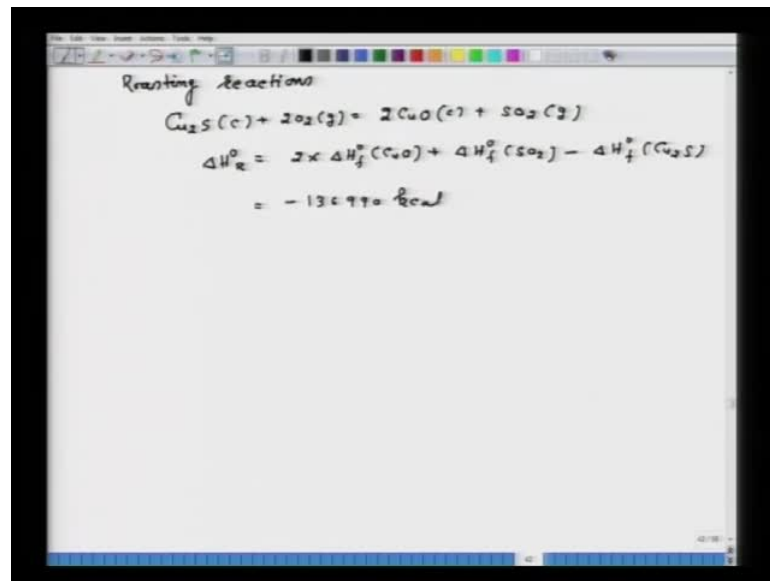 File Edit View Insert Actions Tools Help
Roasting Reactions
Cu₂S(c) + 2O₂(g) = 2CuO(c) + SO₂(g)
ΔH°R = 2× ΔH°f (CuO) + ΔH°f (SO₂) − ΔH°f (Cu₂S)
= −136990 kcal